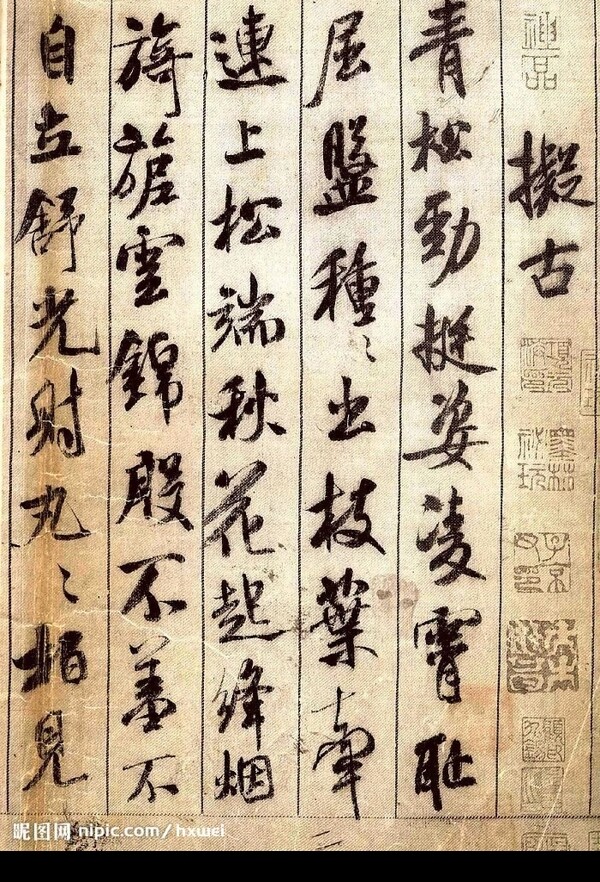 擬古
青松勁挺姿凌霄耻
屈盤種〻出枝葉牽
連上松端秋花起絳烟
旖旎雲錦殷不羞不
自立舒光射丸〻柏見
昵图网 nipic.com/hxwei